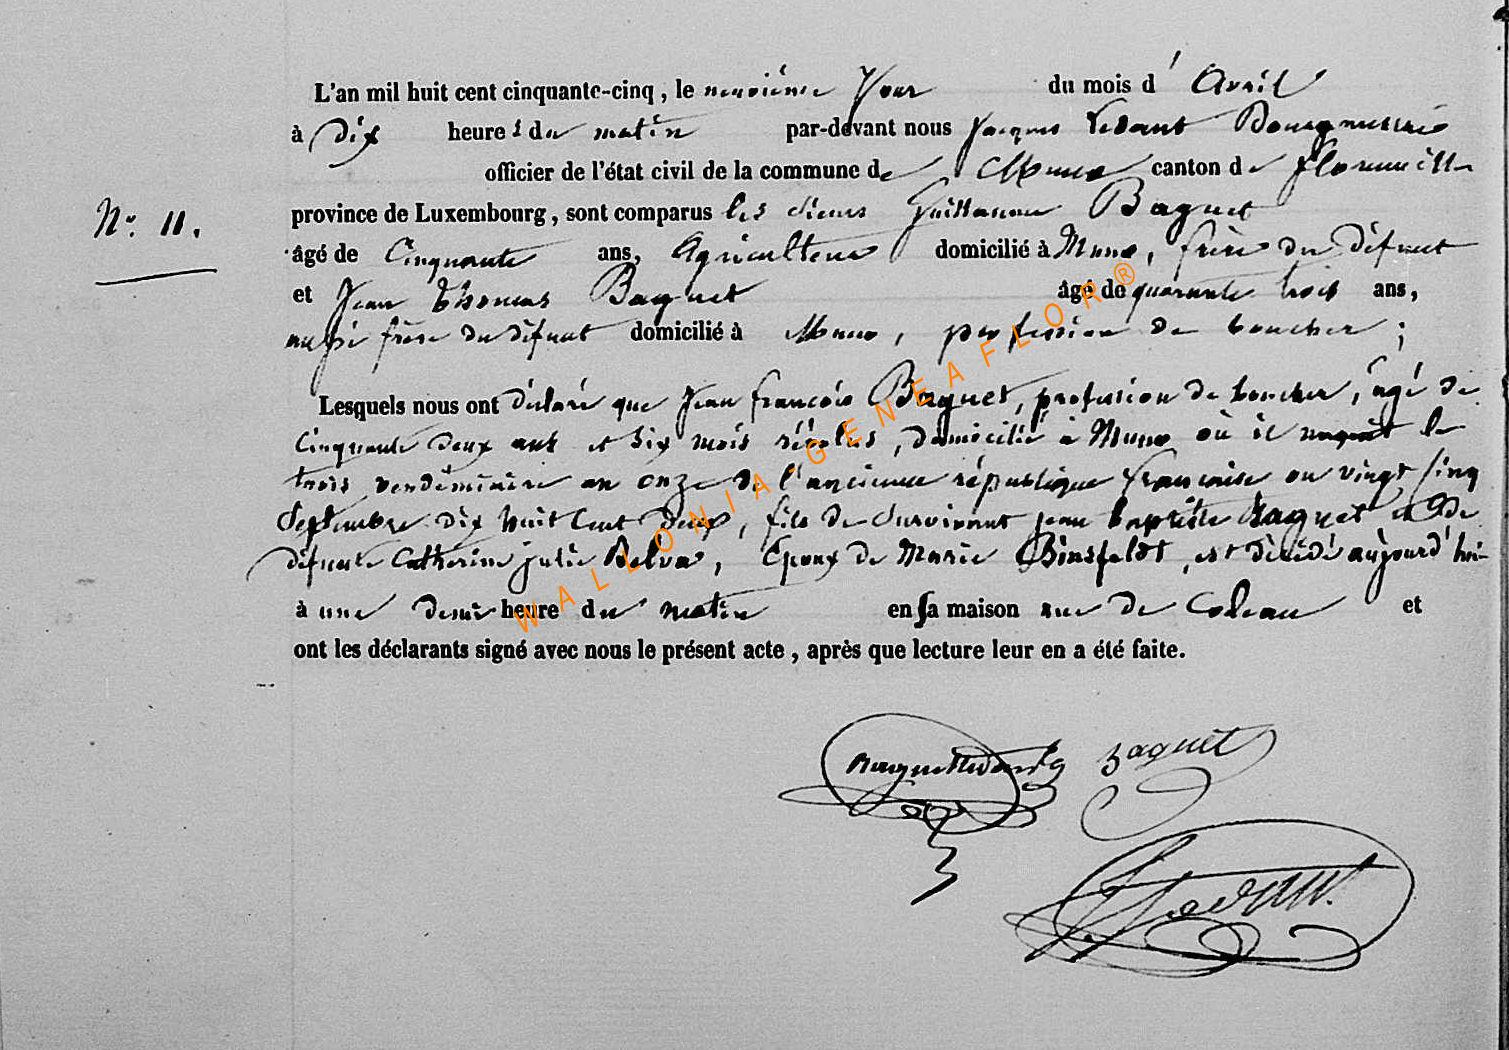 L'an mil huit cent cinquante-cinq, le neuvième Jour du mois d' Avril
à Dix heure s du matin par-devant nous Jacques Bourgmestre
officier de l'état civil de la commune de Muno canton de florenville
province de Luxembourg, sont comparus les sieurs Guillaume Baquet
N° 11.
âgé de Cinquante ans, Agriculteur domicilié à Muno, frère du défunt
et Jean Thomas Baquet âgé de quarante trois ans,
aussi frère du défunt domicilié à Muno, profession de boucher ;
Lesquels nous ont déclaré que Jean françois Baquet, profession de boucher, âgé de
Cinquante deux ans et six mois révolus, domicilié à Muno où il naquit le
trois vendémiaire an onze de l'ancienne république française ou vingt cinq
Septembre dix huit Cent deux, fils de survivant jean baptiste Baquet et de
défunte Catherine julie Belva, Epoux de Marie Binsfeldt, est décédé aujourd'hui
à une demie heure du matin en sa maison rue de et
ont les déclarants signé avec nous le présent acte, après que lecture leur en a été faite.
Baquet
WALLONIA-GENEAFLOR®